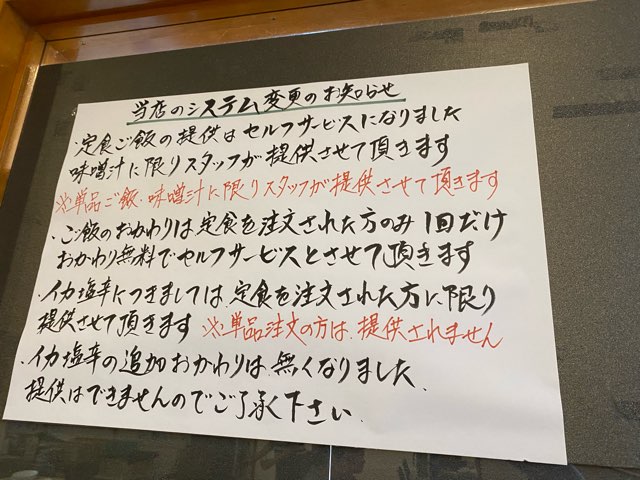 当店のシステム変更のお知らせ
・定食ご飯の提供はセルフサービスになりました
味噌汁に限りスタッフが提供させて頂きます
※単品ご飯・味噌汁に限りスタッフが提供させて頂きます
・ご飯のおかわりは定食を注文された方のみ1回だけ
おかわり無料でセルフサービスとさせて頂きます
・イカ塩辛につきましては、定食を注文された方に限り
提供させて頂きます ※単品注文の方は、提供されません
・イカ塩辛の追加おかわりは、無くなりました、
提供はできませんのでご了承下さい、